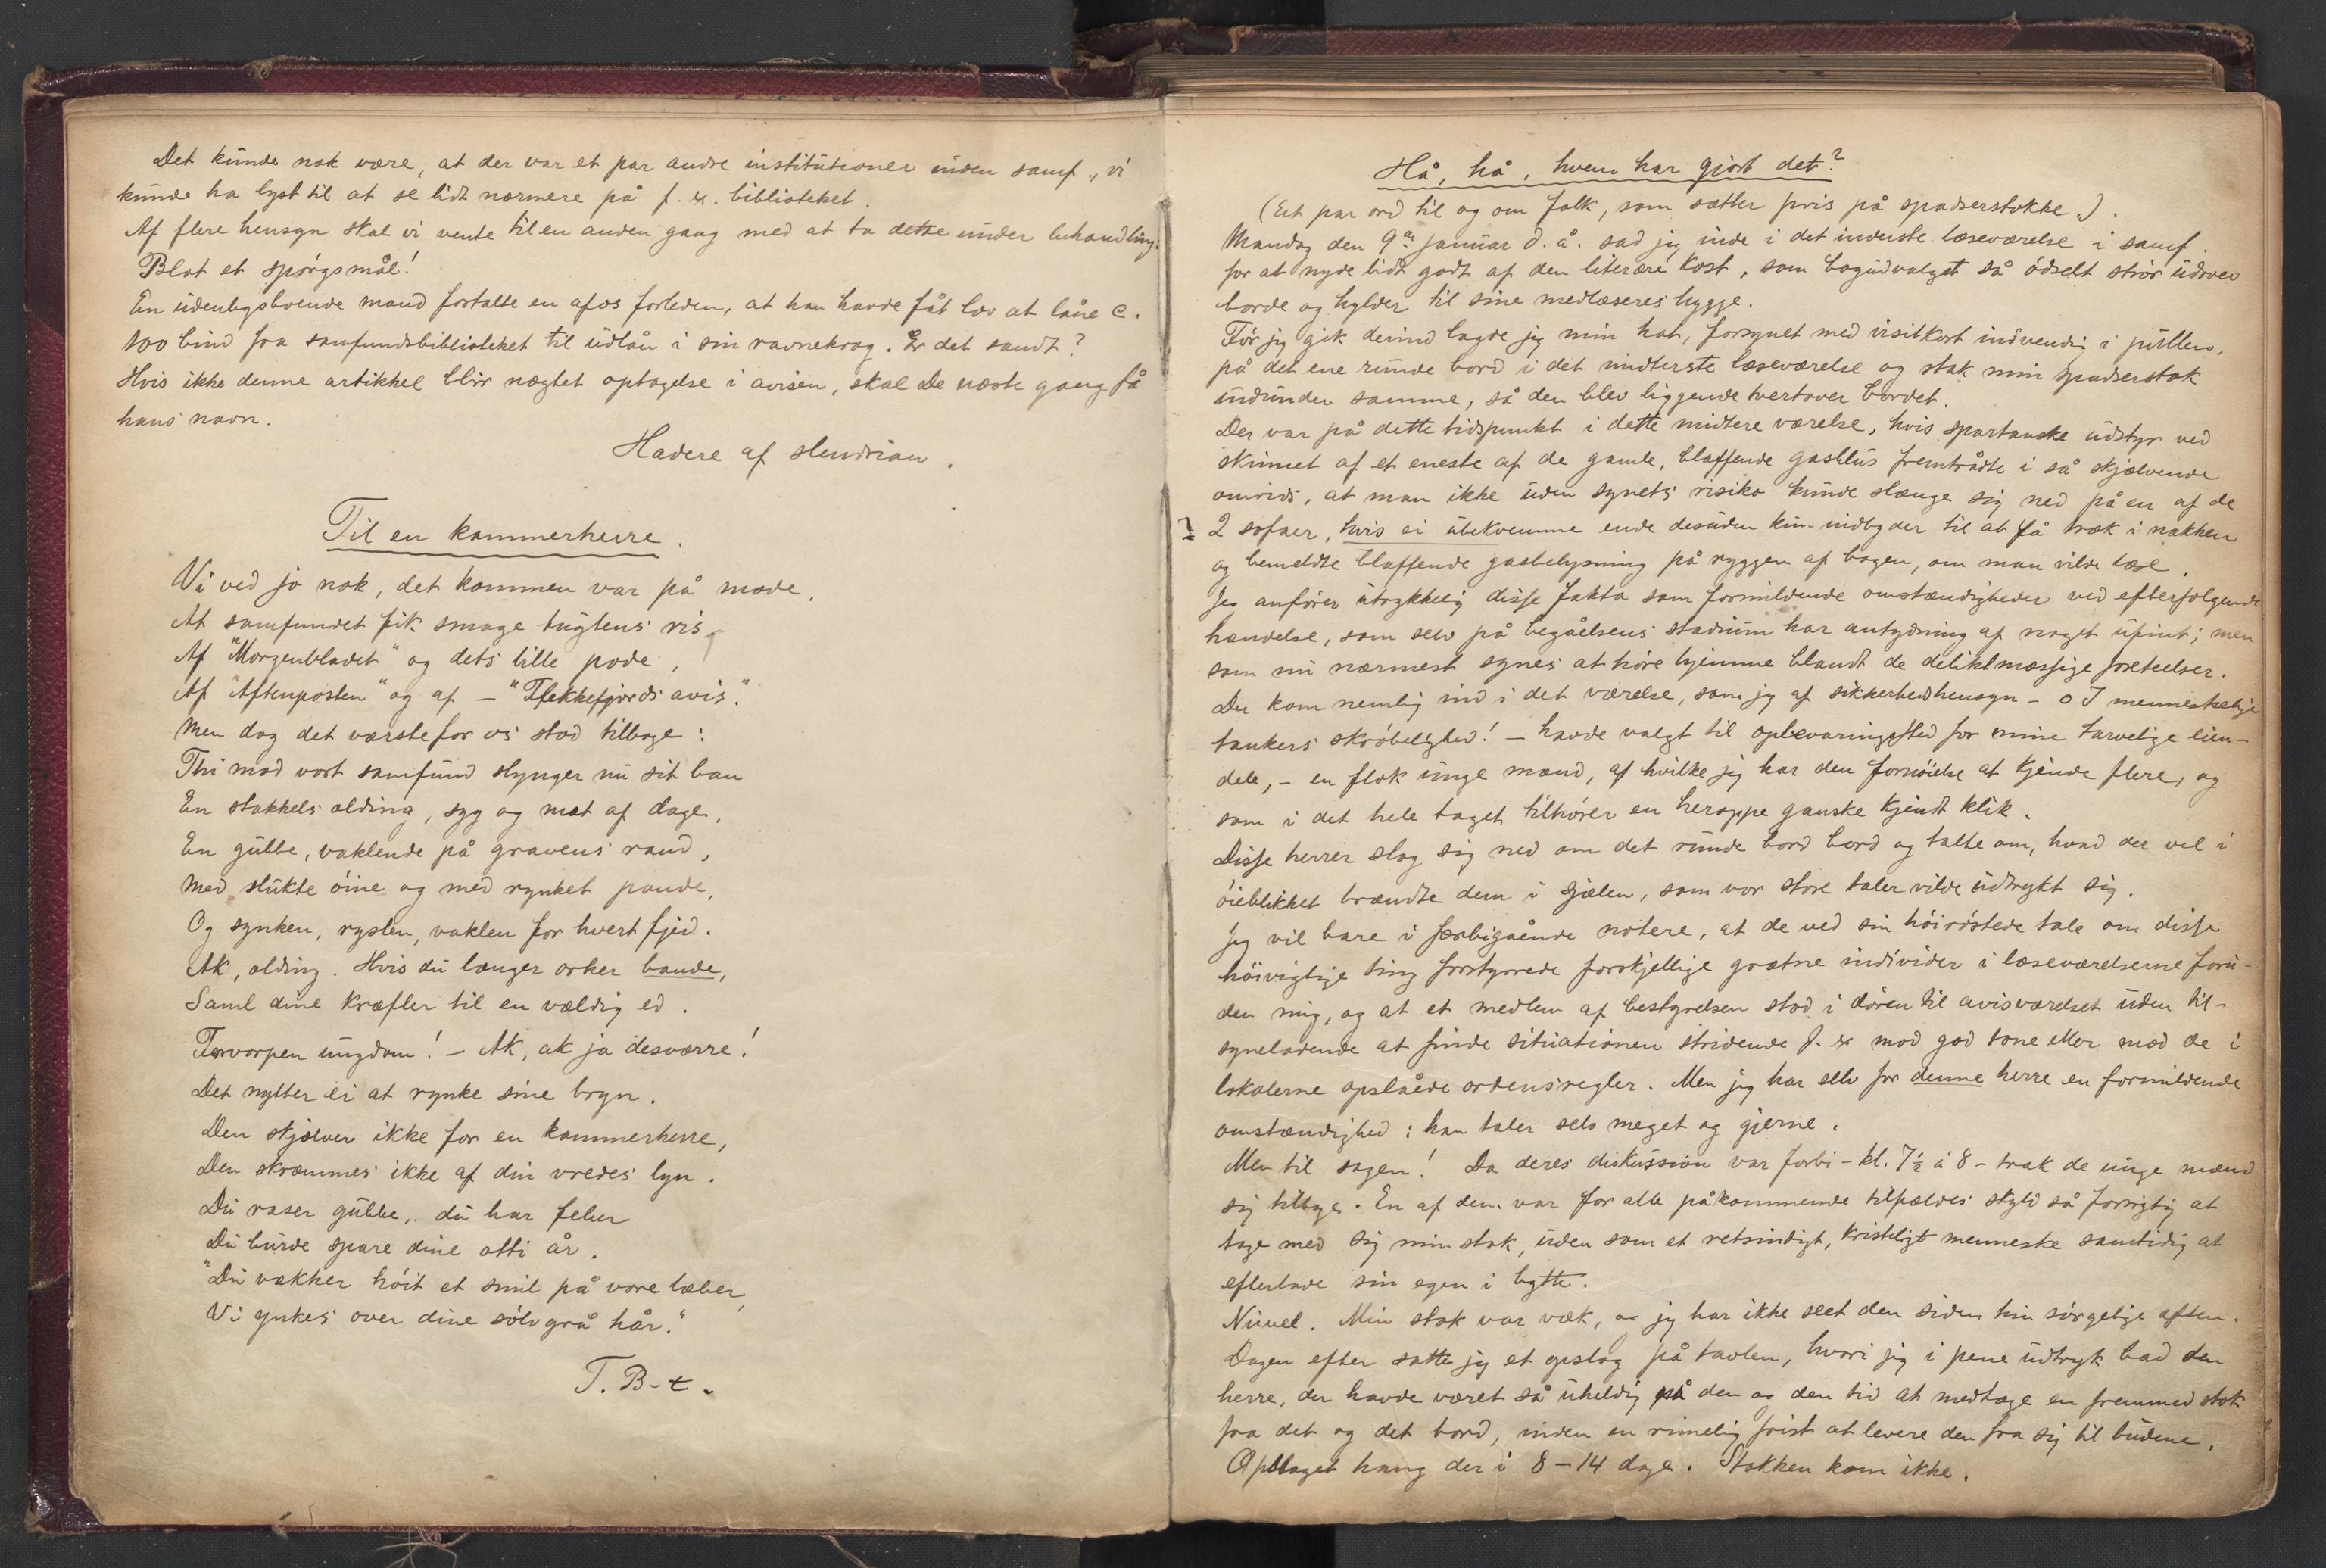 Det kunde nok være, at der var et par andre institutioner inden samf., vi
kunde ha lyst til at se lidt nærmere på f. ex. biblioteket.
Af flere hensyn skal vi vente til en anden gang med at ta dette under behandling.
Blot et spørgsmål!
En udenbysboende mand fortalte en af os forleden, at han havde fåt lov at låne c.
100 bind fra samfundsbiblioteket til udlån i sin ravnekrog. Er det sandt?
Hvis ikke denne artikkel blir nægtet optagelse i avisen, skal De næste gang få
hans navn.
Hadere af slendrian.
Til en kammerherre.
Vi ved jo nok, det kommen var på mode,
At samfundet fik smage tugtens ris
Af "Morgenbladet" og dets lille pode,
Af "Aftenposten" og af – "Flekkefjords avis."
Men dog det værste for os stod tilbage:
Thi mod vort samfund slynger nu sit ban
En stakkels olding, syg og mæt af dage,
En gubbe, vaklende på gravens rand,
Med slukte øine og med rynket pande,
Og synken, rysten, vaklen for hvert fjed.
Ak, olding. Hvis du længer orker bande,
Saml dine kræfter til en vældig ed.
Forvorpen ungdom! – Ak, ak ja desværre!
Det nytter ei at rynke sine bryn.
Den skjælver ikke for en kammerherre,
Den skræmmes ikke af din vredes lyn.
Du raser gubbe, du har feber
Du burde spare dine otti år.
"Du vækker høit et smil på vore læber,
Vi ynkes over dine sølvgrå hår."
T. B-t.
Hå, hå, hvem har gjort det?
(Et par ord til og om folk, som sætter pris på spadserstokke.).
Mandag den 9de januar d. å. sad jeg inde i det inderste læseværelse i samf.
for at nyde lidt godt af den literære kost, som bogudvalget så ødselt strør udover
borde og hylder til sine medlæseres hygge.
Før jeg gik derind lagde jeg min hat, forsynet med visitkort indvendig i pullen,
på det ene runde bord i det midterste læseværelse og stak min spadserstok
indunder samme, så den blev liggende tvertover bordet.
Der var på dette tidspunkt i dette midtere værelse, hvis spartanske udstyr ved
skinnet af et eneste af de gamle, blaffende gasblus fremtrådte i så skjælvende
omrids, at man ikke uden synets risiko kunde slænge sig ned på en af de
? 2 sofaer, hvis ei ubekvemme ende desuden kun indbyder til at få træk i nakken
og bemeldte blaffende gasbelysning på ryggen af bogen, om man vilde læse.
Jeg anfører utrykkelig disse fakta som formildende omstændigheder ved efterfølgende
hændelse, som selv på begåelsens stadium har antydning af noget ufint; men
som nu nærmest synes at høre hjemme blandt de deliktmæssige foreteelser.
Der kom nemlig ind i det værelse, som jeg af sikkerhedshensyn – o I menneskelige
tankers skrøbelighed! – havde valgt til opbevaringssted for mine tarvelige eien-
dele, – en flok unge mænd, af hvilke jeg har den fornøielse at kjende flere, og
som i det hele taget tilhører en heroppe ganske kjendt klik.
Disse herrer slog sig ned om det runde bord bord og talte om, hvad der vel i
øieblikket brændte dem i sjælen, som vor store taler vilde udtrykt sig.
Jeg vil bare i forbigående notere, at de ved sin høirøstede tale om disse
høivigtige ting forstyrrede forskjellige grætne individer i læseværelserne foru-
den mig, og at et medlem af bestyrelsen stod i døren til avisværelset uden til-
syneladende at finde situationen stridende f. ex mod god tone eller mod de i
lokalerne opslåede ordensregler. Men jeg har selv for denne herre en formildende
omstændighed: han taler selv meget og gjerne.
Men til sagen! Da deres diskussion var forbi – kl. 7½ à 8 – trak de unge mænd
sig tilbage. En af dem var for alle påkommende tilfældes skyld så forsigtig at
tage med sig min stok, uden som et retsindigt, kristeligt menneske samtidig at
efterlade sin egen i bytte.
Nuvel. Min stok var væk, og jeg har ikke seet den siden hin sørgelige aften.
Dagen efter satte jeg et opslag på tavlen, hvori jeg i pene udtryk bad den
herre, der havde været så uheldig på den og den tid at medtage en fremmed stok
fra det og det bord, inden en rimelig frist at levere den fra sig til budene.
Opslaget hang der i 8 – 14 dage. Stokken kom ikke.